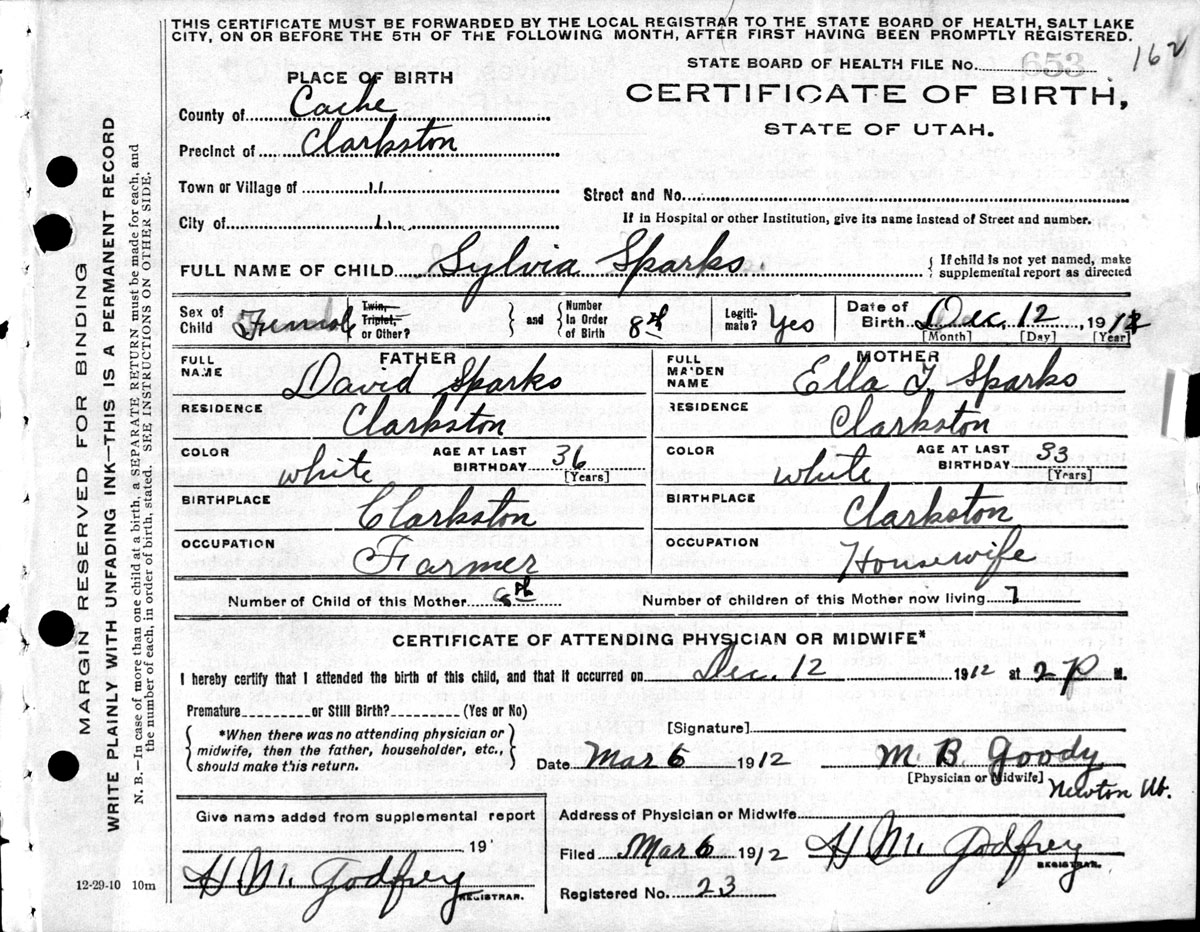 THIS CERTIFICATE MUST BE FORWARDED BY THE LOCAL REGISTRAR TO THE STATE BOARD OF HEALTH, SALT LAKE
CITY, ON OR BEFORE THE 5TH OF THE FOLLOWING MONTH, AFTER FIRST HAVING BEEN PROMPTLY REGISTERED.
162
STATE BOARD OF HEALTH FILE No. 653
CERTIFICATE OF BIRTH,
STATE OF UTAH.
PLACE OF BIRTH
County of Cache
Precinct of Clarkston
Town or Village of "
City of "
Street and No.
If in Hospital or other Institution, give its name instead of Street and number.
FULL NAME OF CHILD Sylvia Sparks
{ If child is not yet named, make
supplemental report as directed
Sex of Child Female
Twin, Triplet, or Other? } and { Number In Order of Birth 8th
Legitimate? Yes
Date of Birth Dec. 12, 191
[Month] [Day] [Year]
FATHER
FULL NAME David Sparks
RESIDENCE Clarkston
COLOR white AGE AT LAST BIRTHDAY 36 [Years]
BIRTHPLACE Clarkston
OCCUPATION Farmer
MOTHER
FULL MAIDEN NAME Ella Sparks
RESIDENCE Clarkston
COLOR white AGE AT LAST BIRTHDAY 33 [Years]
BIRTHPLACE Clarkston
OCCUPATION Housewife
Number of Child of this Mother 8th Number of children of this Mother now living 7
CERTIFICATE OF ATTENDING PHYSICIAN OR MIDWIFE*
I hereby certify that I attended the birth of this child, and that it occurred on Dec. 12 1912 at 2 P M.
Premature? or Still Birth? (Yes or No)
{ *When there was no attending physician or
midwife, then the father, householder, etc.,
should make this return. }
[Signature]
Date Mar 6 1912 M. B. Goody
[Physician or Midwife]
Newton Ut.
Give name added from supplemental report
191
H M. Godfrey
REGISTRAR.
Address of Physician or Midwife
Filed Mar 6 1912 H M. Godfrey
REGISTRAR.
Registered No. 23
12-29-10 10m
MARGIN RESERVED FOR BINDING
WRITE PLAINLY WITH UNFADING INK—THIS IS A PERMANENT RECORD
N. B.—In case of more than one child at a birth, a SEPARATE RETURN must be made for each, and
the number of each, in order of birth, stated. SEE INSTRUCTIONS ON OTHER SIDE.